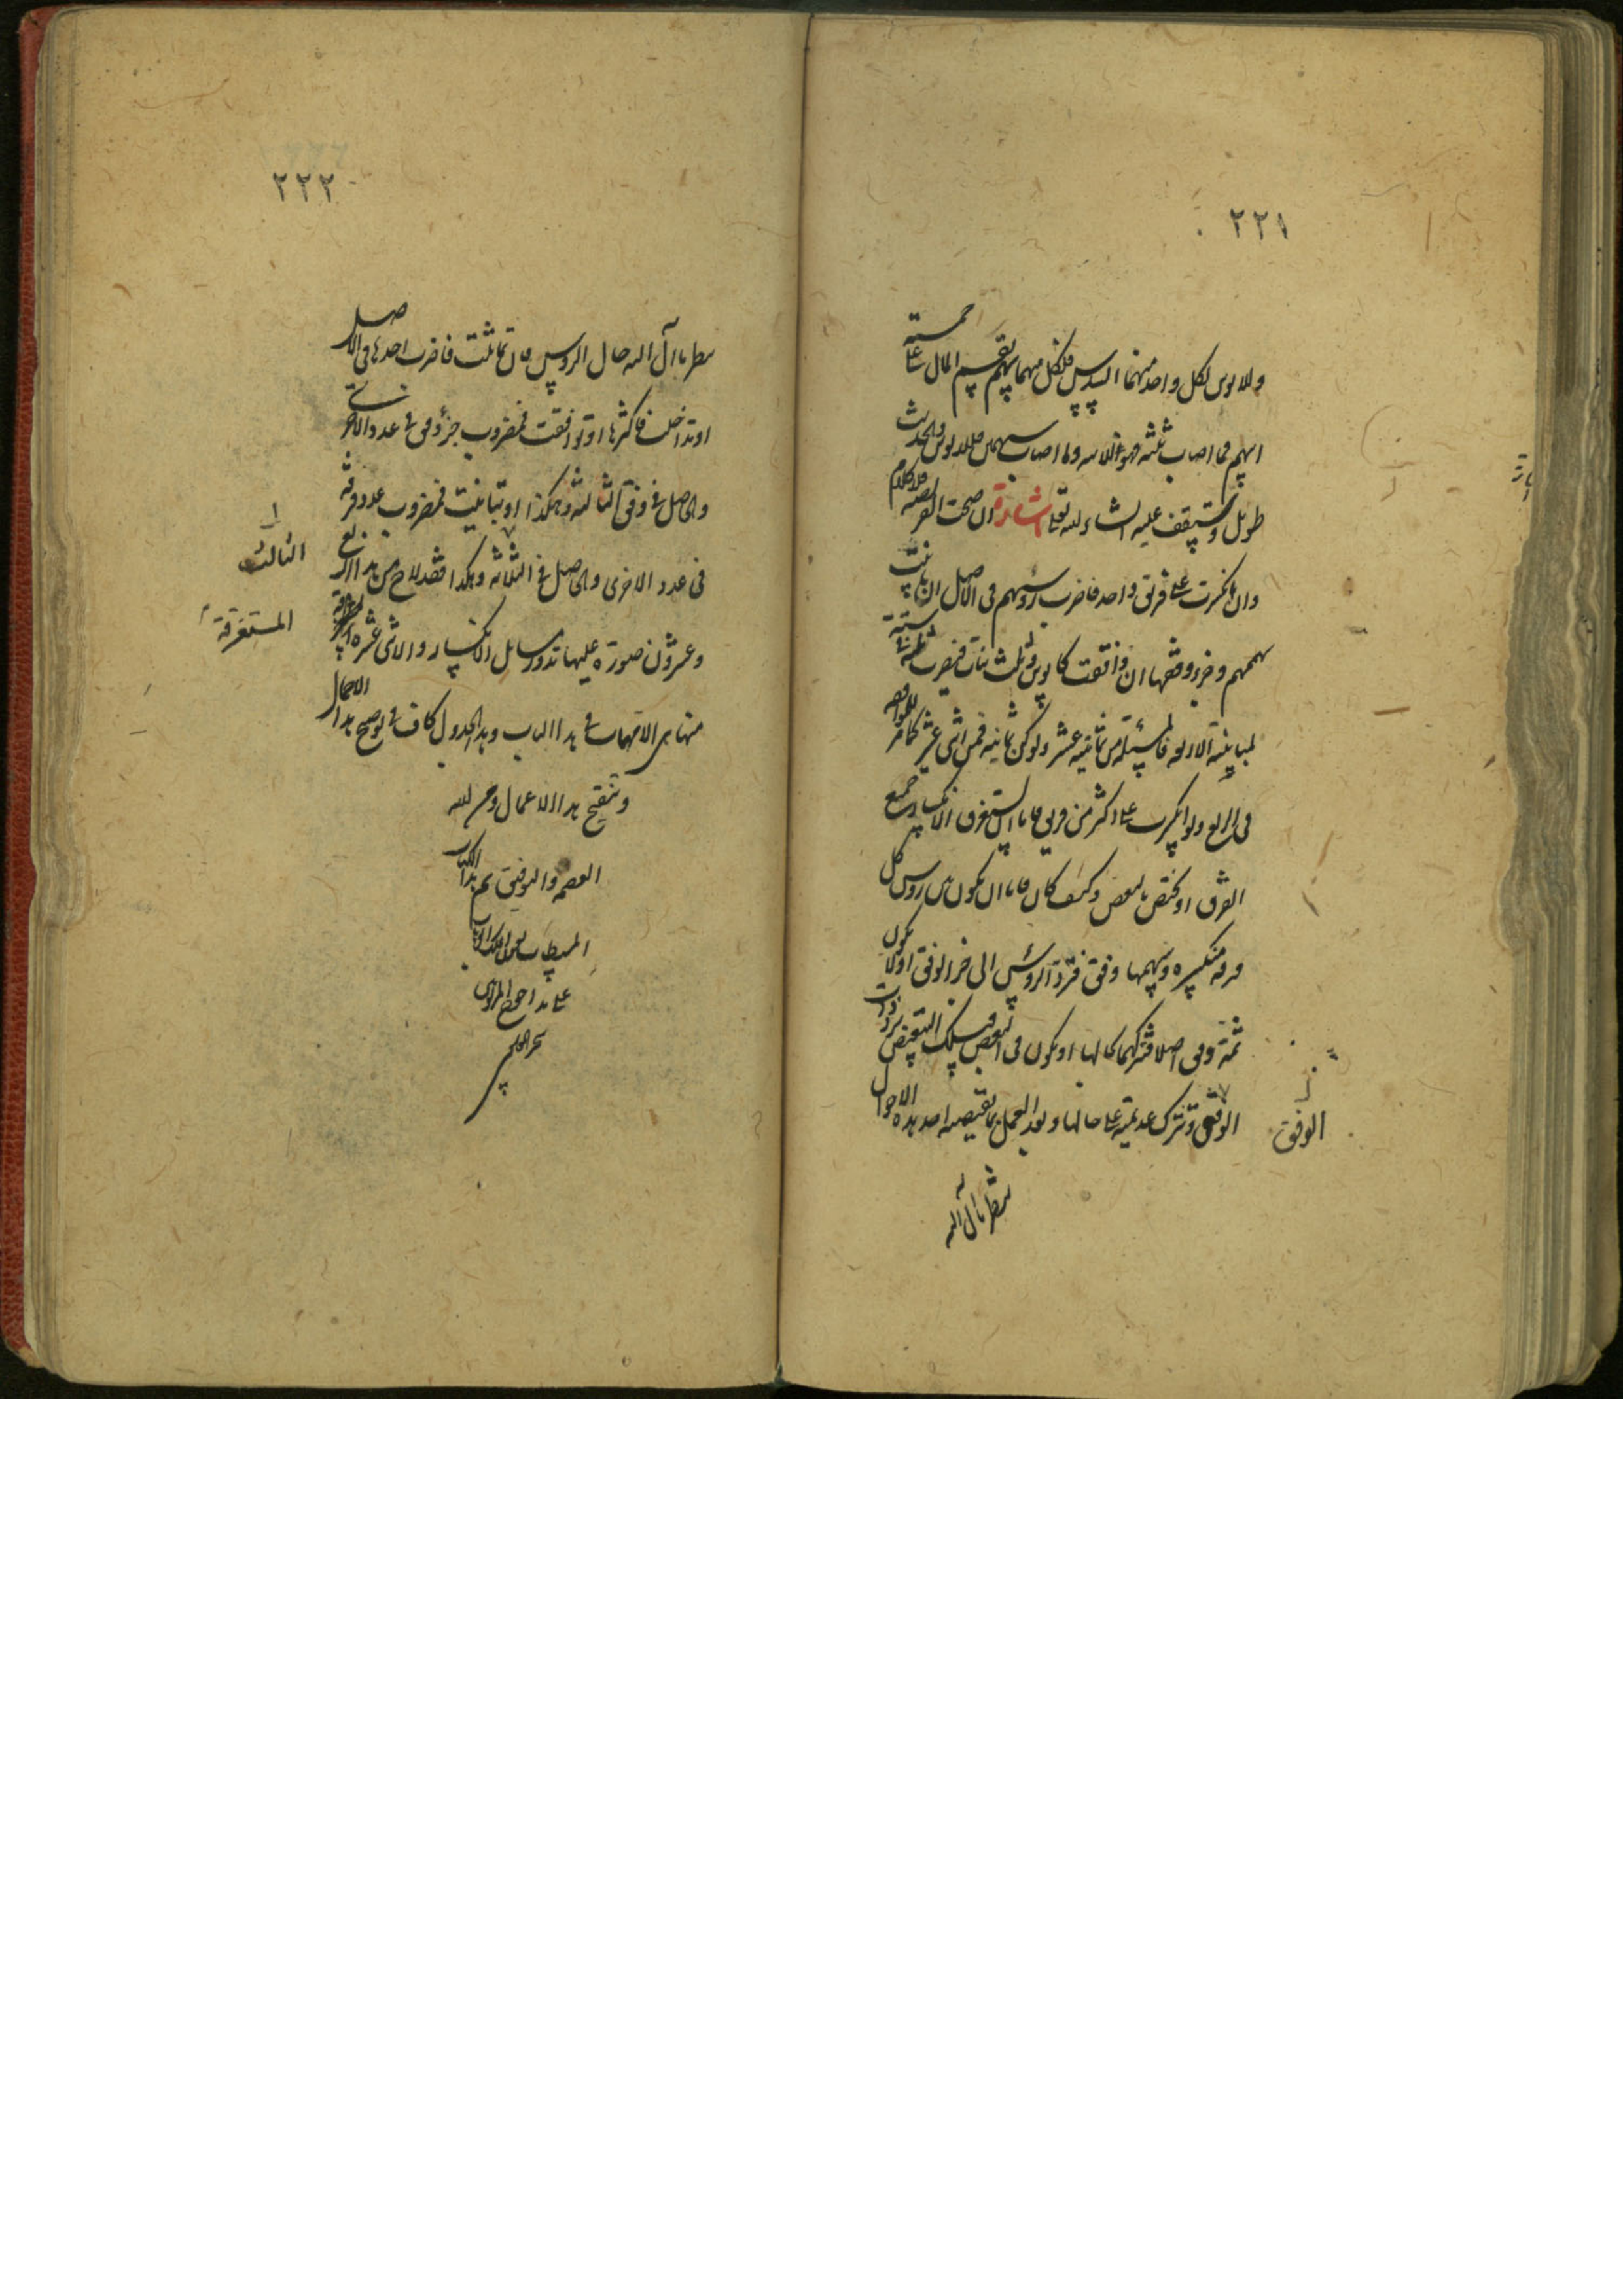 ٢٢١
وللابوين لكل واحد منهما السدس فلكل منهما سهم يقسم المال على خمسة
اسهم فما اصاب ثلثه فهو للابنة وما اصاب سهمين فللابوين والحديث
طويل وستقف عليه انشاء الله تعالى اشارة ان صحت الفريضة فلا كلام
وان انكسرت على فريق واحد فاضرب رؤسهم في الاصل ان باينت
سهمهم وجزء وفقها ان وافقت كابوين وثلث بنات فيضرب ثلثة في ستة
لمباينة الاربعة فالمسئلة من ثمانية عشر ولو كن ثمانية فمن اثنى عشر كما مر للموافقة
في الربع ولو انكسرت على اكثر من فريق فاما ان يستغرق الانكسار جميع
الفرق او يختص بالبعض وكيف كان فاما ان يكون بين رؤس كل
فرقة منكسرة وسهمها وفق فترد الرؤس الى جزء الوفق او لا يكون
ثمة وفق اصلا فتتركها بحالها او يكون في البعض فسلك التبعيض برد ذات
الوفق وتترك عديمته على حالها وبعد العمل بما تقتضيه احد هذه الاحوال
الوفق
ينظر ما آل اليه
٢٢٢
ينظر ما آل اليه حال الرؤس فان تماثلت فاضرب احدها في الاصل
او تداخلت فاكثرها او توافقت فمضروب جزء وفق في عدد الاخرى
والحاصل في وفق الثالثة وهكذا او تباينت فمضروب عدد فرقة
في عدد الاخرى والحاصل في الثلاثة وهكذا فقد لاح من هذا اربع
الثالث
وعشرون صورة عليها تدور مسائل الانكسار والاثنى عشرة
المستغرقة
منها هي الامهات في هذا الباب وهذا الجدول كاف في توضيح هذا الاجمال
وتنقيح هذا الاعمال ومن الله
العصمة والتوفيق تم هذا الكتاب
المستطاب بعون الملك الوهاب